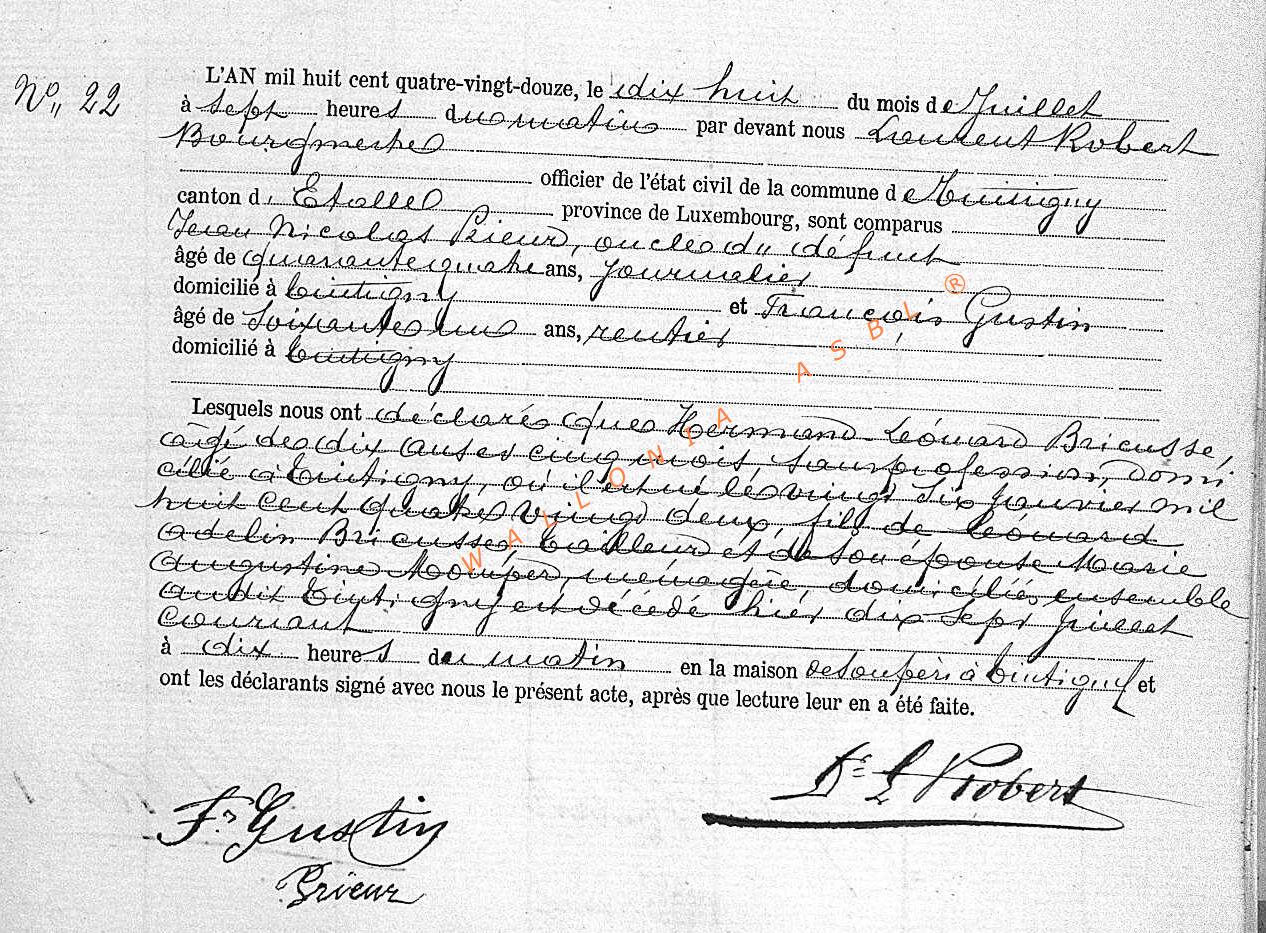 N° 22
L'AN mil huit cent quatre-vingt-douze, le dix huit du mois de Juillet
à sept heures du matin par devant nous Laurent Robert
Bourgmestre
officier de l'état civil de la commune de Tintigny
canton d' Etalle province de Luxembourg, sont comparus
Jean Nicolas Prieur, oncle du défunt
âgé de quarante quatre ans, journalier
domicilié à Tintigny et François Gustin
âgé de Soixante un ans, rentier
domicilié à Tintigny
Lesquels nous ont déclaré que Hermand Léonard Bricusse,
âgé de dix ans et cinq mois, sans profession, domi
cilié à Tintigny, où il est né le vingt six Janvier mil
huit cent quatre vingt deux, fils de Léonard
Adelin Bricusse tailleur et de son épouse Marie
Augustine ménagère, domiciliés ensemble
audit Tintigny est décédé hier dix sept Juillet
courant
à dix heures du matin en la maison de son père à Tintigny et
ont les déclarants signé avec nous le présent acte, après que lecture leur en a été faite.
Dr L Robert
Fr Gustin
Prieur
WALLONIA ASBL ®